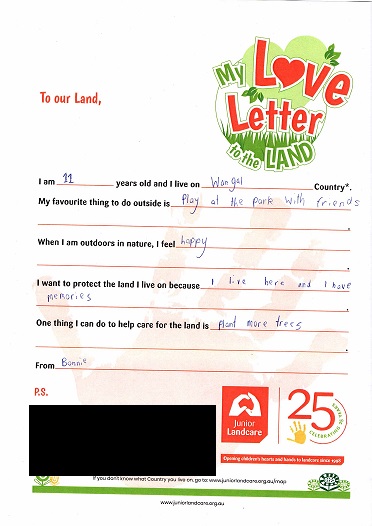 My Love
Letter
to the LAND
To our Land,
I am 11 years old and I live on Wangal Country*.
My favourite thing to do outside is play at the park with friends
.
When I am outdoors in nature, I feel happy
.
I want to protect the land I live on because I live here and I have
memories.
One thing I can do to help care for the land is plant more trees
.
From Bonnie
P.S.
Junior
Landcare
25
CELEBRATING 25 YEARS
Opening children's hearts and hands to landcare since 1998
If you don't know what Country you live on, go to: www.juniorlandcare.org.au/map
www.juniorlandcare.org.au